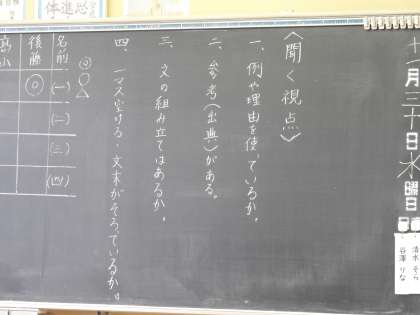 十一月三十日水曜日
清水 そら
谷澤 りな
〈聞く視点〉
一、例や理由を使っているか。
二、参考(出典)がある。
三、文の組み立てはあるか。
四、一マス空ける・文末がそろっているか。
◎○△
名前 (一) (二) (三) (四)
後藤 ◎